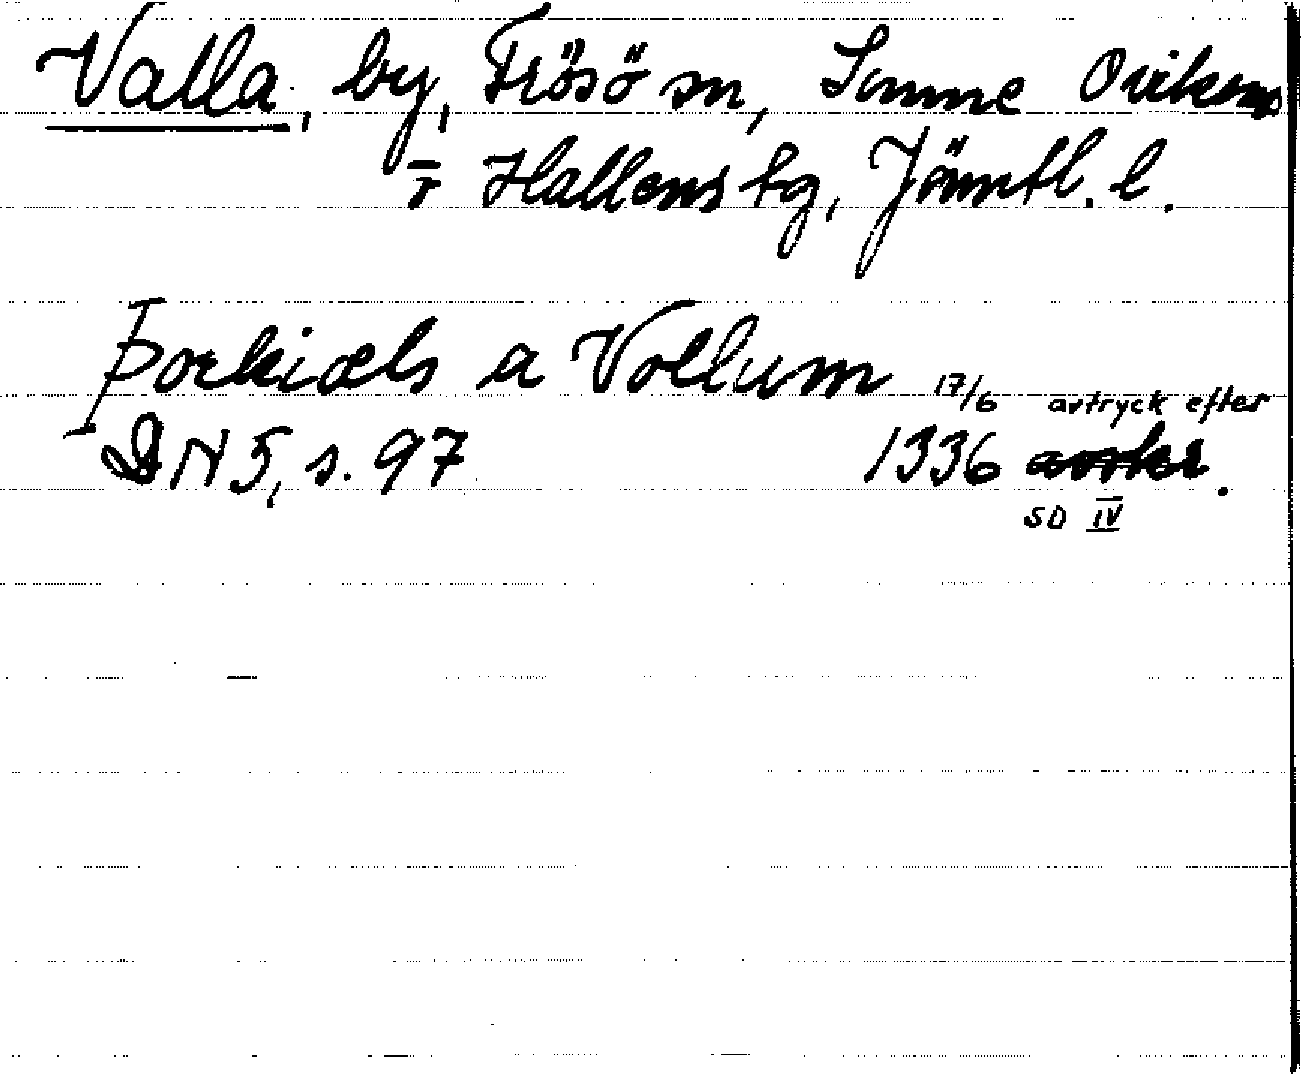 Valla, by, Frösö sn, Sunne Ovikens
o Hallens tg, Jämtl. l.
Þorkiæls a Vollum 17/6 avtryck efter
DN 5, s. 97 1336 avskr.
SD IV